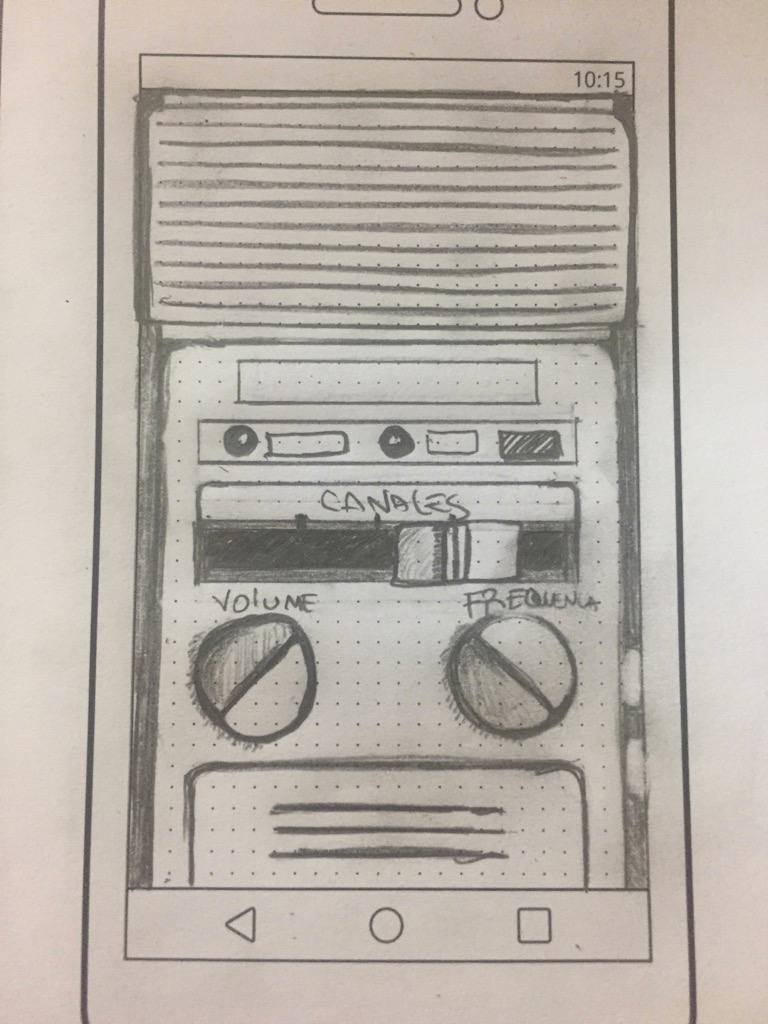 10:15
CANALES
VOLUME
FREQUENCIA